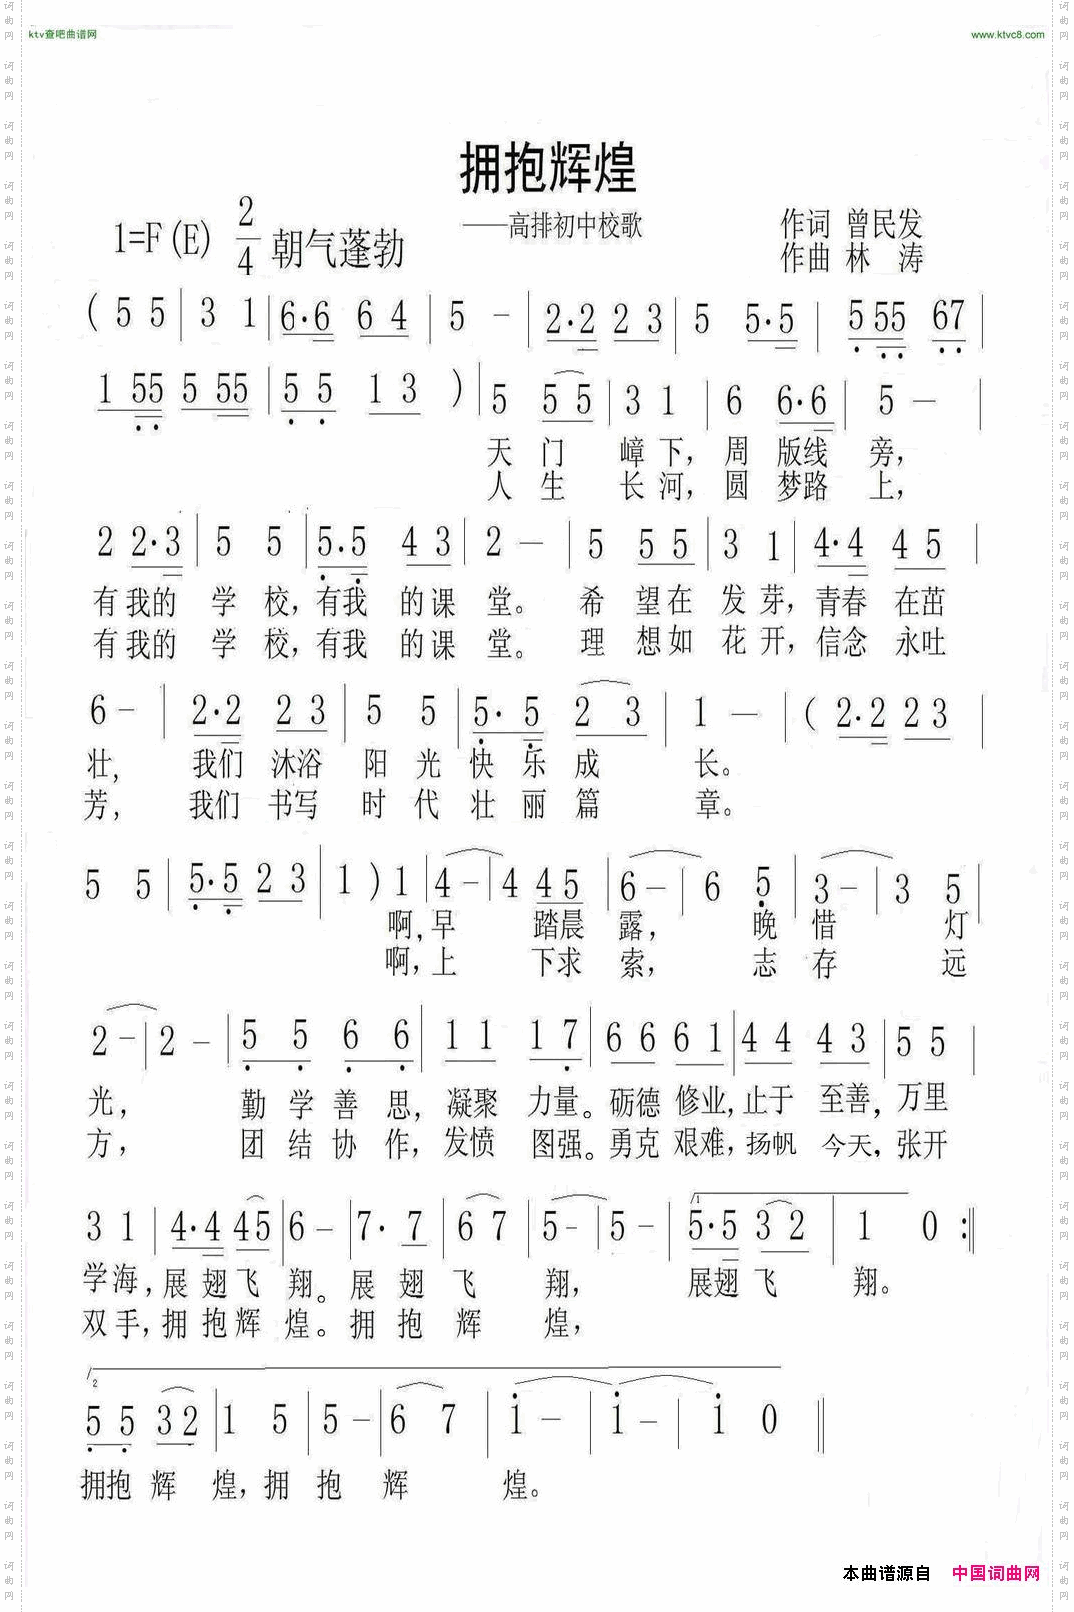 ktv查吧曲谱网
www.ktvc8.com
拥抱辉煌
——高排初中校歌
作词 曾民发
作曲 林 涛
1=F(E) 2/4 朝气蓬勃
( 5 5 | 3 1 | 6·6 6 4 | 5 - | 2·2 2 3 | 5 5·5 | 5 55 67 |
1 55 5 55 | 5 5 1 3 ) | 5 5 5 | 3 1 | 6 6·6 | 5 - |
天 门 嶂 下, 周 版线 旁,
人 生 长 河, 圆 梦路 上,
2 2·3 | 5 5 | 5·5 4 3 | 2 - | 5 5 5 | 3 1 | 4·4 4 5 |
有 我的 学 校, 有我 的课 堂。 希 望在 发 芽, 青春 在茁
有 我的 学 校, 有我 的课 堂。 理 想如 花 开, 信念 永吐
6 - | 2·2 2 3 | 5 5 | 5· 5 2 3 | 1 - | ( 2·2 2 3 |
壮, 我们 沐浴 阳 光 快 乐 成 长。
芳, 我们 书写 时 代 壮 丽 篇 章。
5 5 | 5·5 2 3 | 1 ) 1 | 4 - | 4 4 5 | 6 - | 6 5 | 3 - | 3 5 |
啊, 早 踏晨 露, 晚 惜 灯
啊, 上 下求 索, 志 存 远
2 - | 2 - | 5 5 6 6 | 1 1 1 7 | 6 6 6 1 | 4 4 4 3 | 5 5 |
光, 勤 学 善 思, 凝聚 力量。 砺德 修业, 止于 至善, 万里
方, 团 结 协 作, 发愤 图强。 勇克 艰难, 扬帆 今天, 张开
3 1 | 4·4 4 5 | 6 - | 7· 7 | 6 7 | 5 - | 5 - | 1 5·5 3 2 | 1 0 :‖
学海, 展 翅 飞 翔。 展 翅 飞 翔, 展翅 飞 翔。
双手, 拥 抱 辉 煌。 拥 抱 辉 煌,
2
5 5 3 2 | 1 5 | 5 - | 6 7 | 1 - | 1 - | 1 0 ‖
拥抱 辉 煌, 拥 抱 辉 煌。
本曲谱源自 中国词曲网